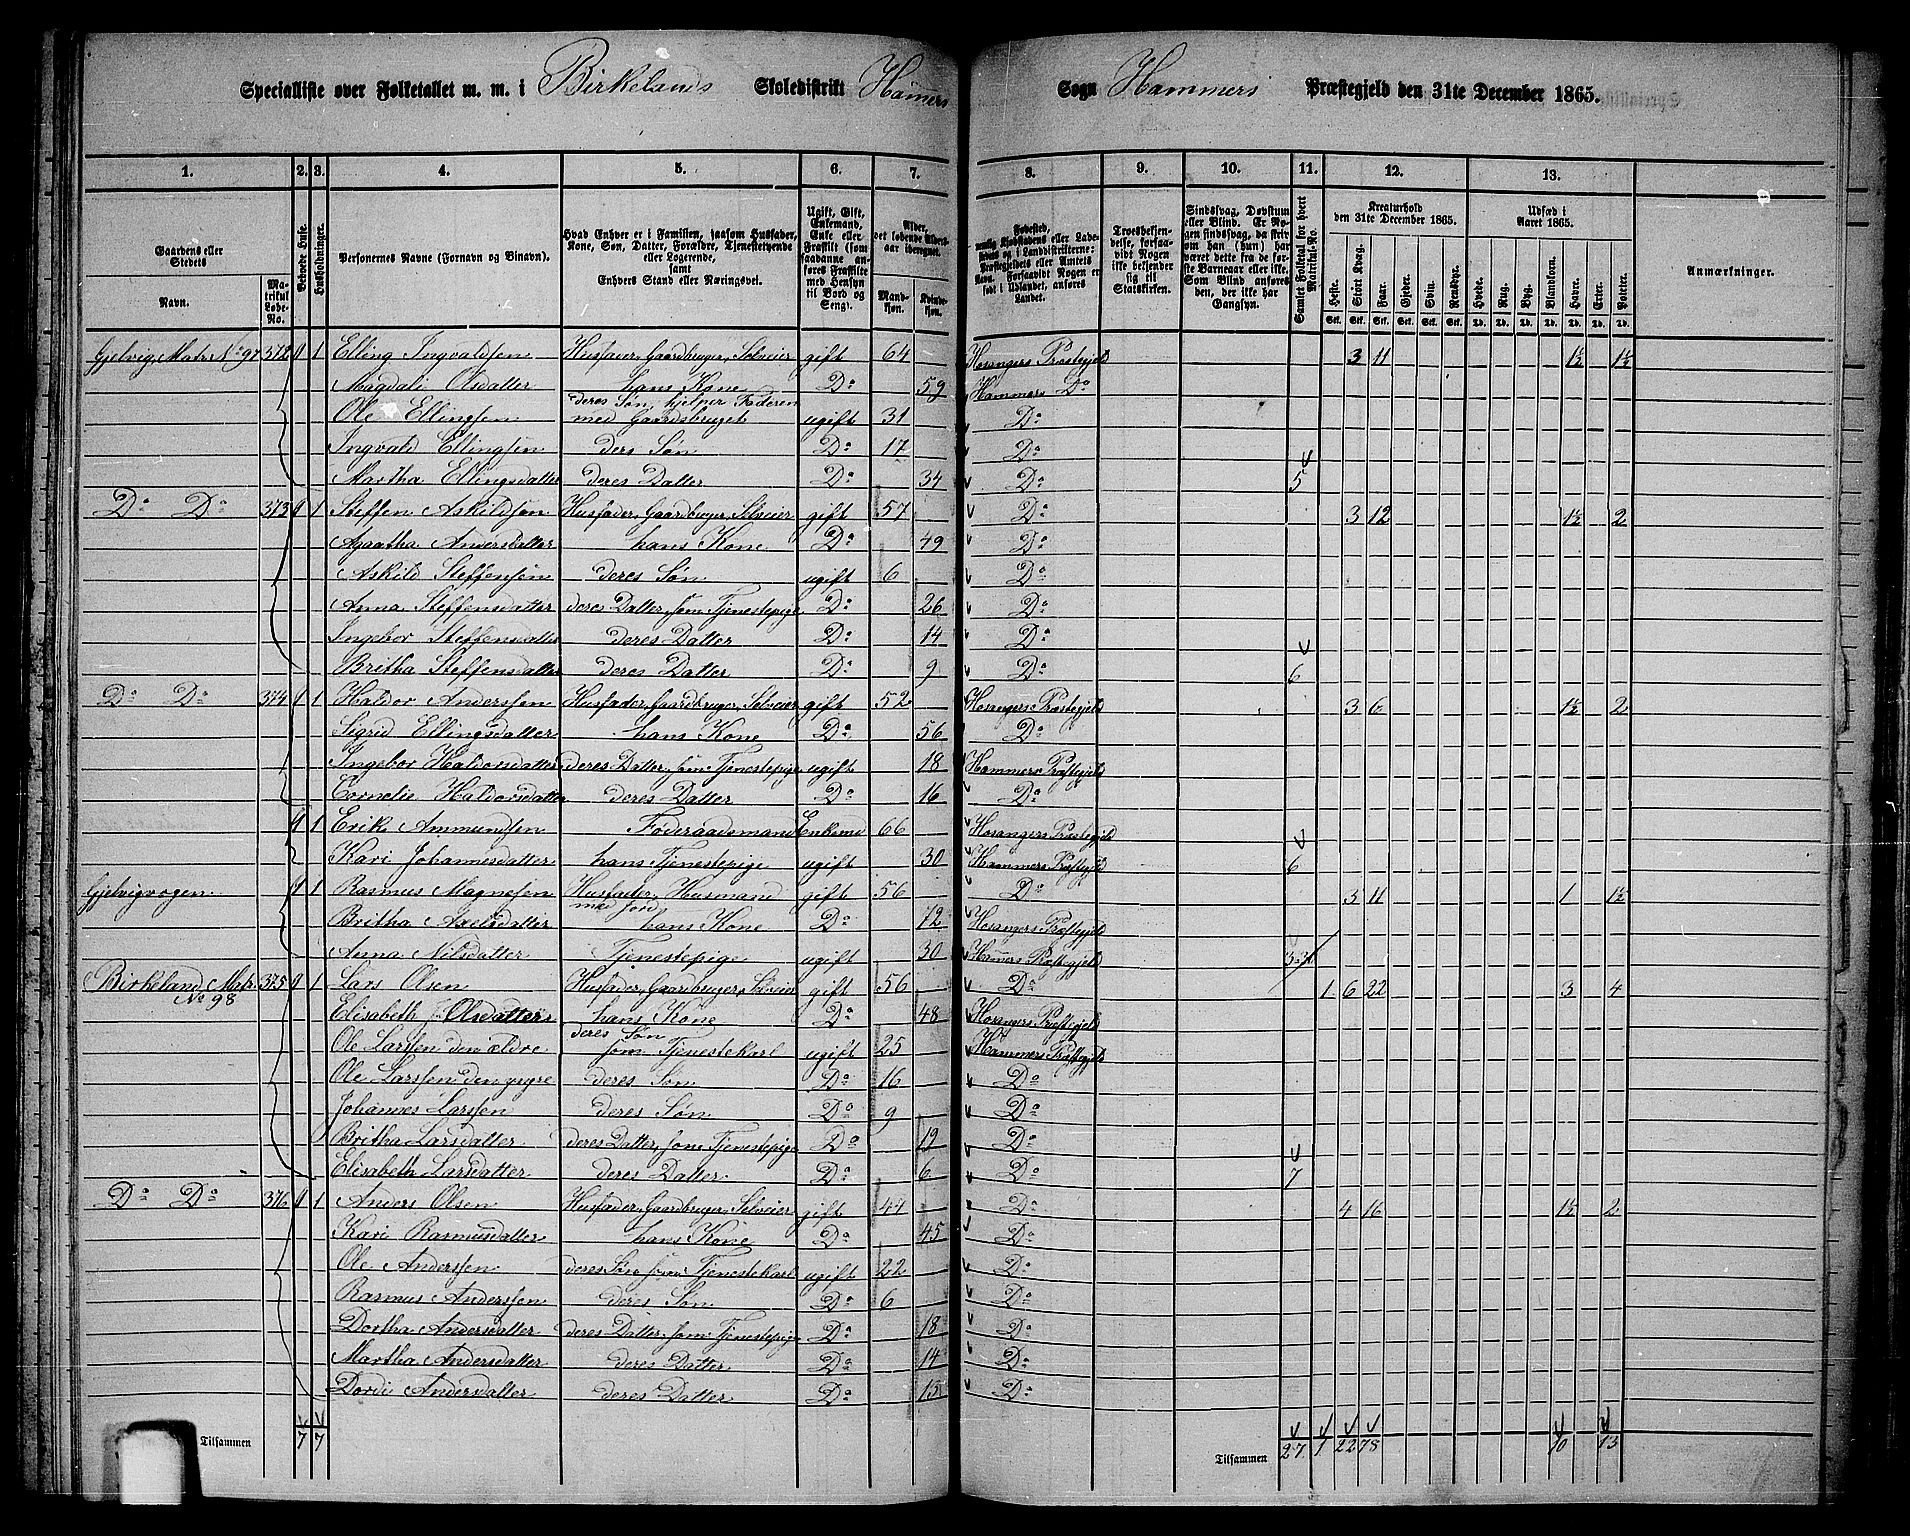 Specialliste over Folketallet m. m. i Birkelands Skoledistrikt Hammers Sogn Hammers Præstegjeld den 31te December 1865.
1. 2. 3. 4. 5. 6. 7. 8. 9. 10. 11. 12. 13.
Gaardens eller Stedets
Navn.
Matrikul Løbe-No.
Beboede Huse.
Husholdninger.
Personernes Navne (Fornavn og Binavn).
Hvad Enhver er i Familien, saasom Husfader, Kone, Søn, Datter, Forældre, Tjenestetyende eller Logerende, samt Enhvers Stand eller Næringsvei.
Ugift, Gift, Enkemand, Enke eller Fraskilt (som saadanne anføres Fraskilte med Hensyn til Bord og Seng).
Alder, det løbende Alders-aar iberegnet.
Mandkjøn. Kvindekjøn.
Fødested,
Troesbekjendelse, forsaavidt Nogen ikke bekjender sig til Statskirken.
Sindssvag, Døvstum eller Blind. Er Nogen sindssvag, da skriv om han (hun) har været dette fra de første Barneaar eller ikke. Som Blind anføres den, der ikke har Gangsyn.
Samlet Folketal for hvert Matrikul-No.
Kreaturhold den 31te December 1865.
Heste. Stort Kvæg. Faar. Gjeder. Svin. Rensdyr.
Udsæd i Aaret 1865.
Hvede. Rug. Byg. Blandkorn. Havre. Erter. Poteter.
Anmærkninger.
Gjelvig, Matr. No 97 372 1 1 Elling Ingvaldsen Husfader, Gaardbruger, Selveier gift 64 Hosangers Præstegjeld 3 11 1½ 1½
Magdali Olsdatter hans Kone Do 59 Hammers Do
Ole Ellingsen deres Søn, hjelper Faderen med Gaardsbruget ugift 31 Do
Ingvald Ellingsen ders Søn Do 17 Do
Martha Ellingsdatter deres Datter Do 34 Do 5
Do Do 373 1 1 Steffen Askildsen Husfader, Gaardbruger, Selveier gift 57 Do 3 12 1½ 2
Agaatha Andersdatter hans Kone Do 49 Do
Askild Steffensen deres Søn ugift 6 Do
Anna Steffensdatter deres Datter, som Tjenestepige Do 26 Do
Ingebor Steffensdatter deres Datter Do 14 Do
Britha Steffensdatter deres Datter Do 9 Do 6
Do Do 374 1 1 Haldor Anderssen Husfader, Gaardbruger, Selveier gift 52 Hosangers Præstegjeld 3 6 1½ 2
Sigrid Ellingsdatter hans Kone Do 56 Do
Ingebor Haldorsdatter deres Datter, som Tjenestepige ugift 18 Hammers Præstegjeld
Cornelie Haldorsdatter deres Datter Do 16 Do
1 Erik Ammundsen Føderaadsmand Enkemd 66 Hosangers Præstegjeld
Kari Johannesdatter hans Tjenestepige ugift 30 Hammers Præstegjeld 6
Gjelvigvogen 1 1 Rasmus Magnesen Husfader, Husmand med Jord gift 56 Do 3 11 1 1½
Britha Axelsdatter hans Kone Do 72 Hosangers Præstegjeld
Anna Nilsdatter Tjenestepige ugift 30 Hammers Præstegjeld
Birkeland Matr. No 98 375 1 1 Lars Olsen Husfader, Gaardbruger, Selveier gift 56 Do 1 6 22 3 4
Elisabeth Olsdatter hans Kone Do 48 Hosangers Præstegjeld
Ole Larssen den ældre deres Søn som Tjenestekarl ugift 25 Hammers Præstegjeld
Ole Larssen den yngre deres Søn Do 16 Do
Johannes Larssen deres Søn Do 9 Do
Britha Larsdatter deres Datter, som Tjenestepige Do 19 Do
Elisabeth Larsdatter deres Datter Do 6 Do 7
Do Do 376 1 1 Anders Olsen Husfader, Gaardbruger, Selveier gift 44 Do 4 16 1½ 2
Kari Rasmusdatter hans Kone Do 45 Do
Ole Anderssen deres Søn som Tjenestekarl ugift 22 Do
Rasmus Anderssen deres Søn Do 6 Do
Dortha Andersdatter deres Datter, som Tjenestepige Do 18 Do
Martha Andersdatter deres Datter Do 14 Do
Dordi Andersdatter deres Datter Do 13 Do
Tilsammen 7 7 Tilsammen 27 1 22 78 10 13